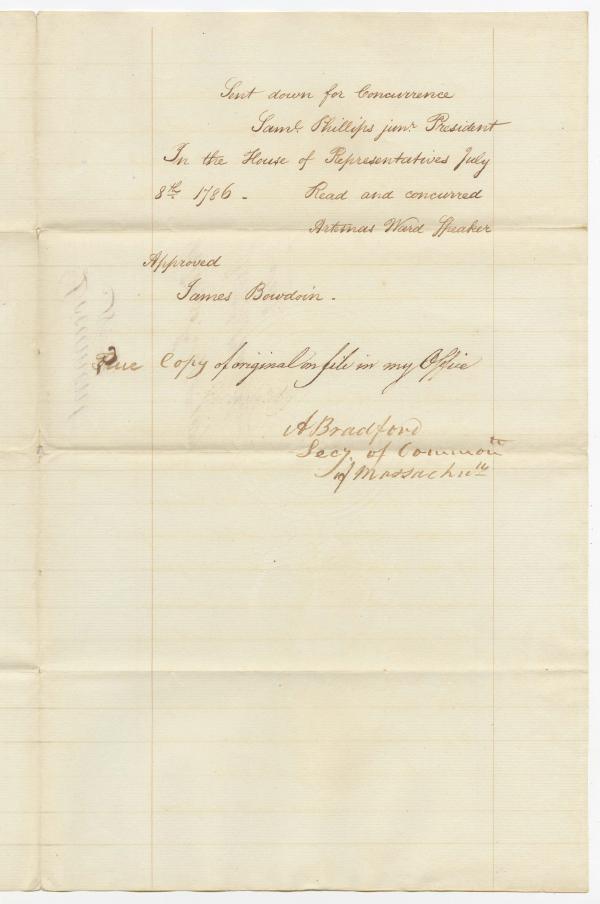 Sent down for Concurrence
Saml. Phillips junr. President
In the House of Representatives July
8th 1786. Read and concurred
Artemas Ward Speaker
Approved
James Bowdoin.
True Copy of original on file in my Office
A Bradford
Secy. of Common th
of Massachu tts